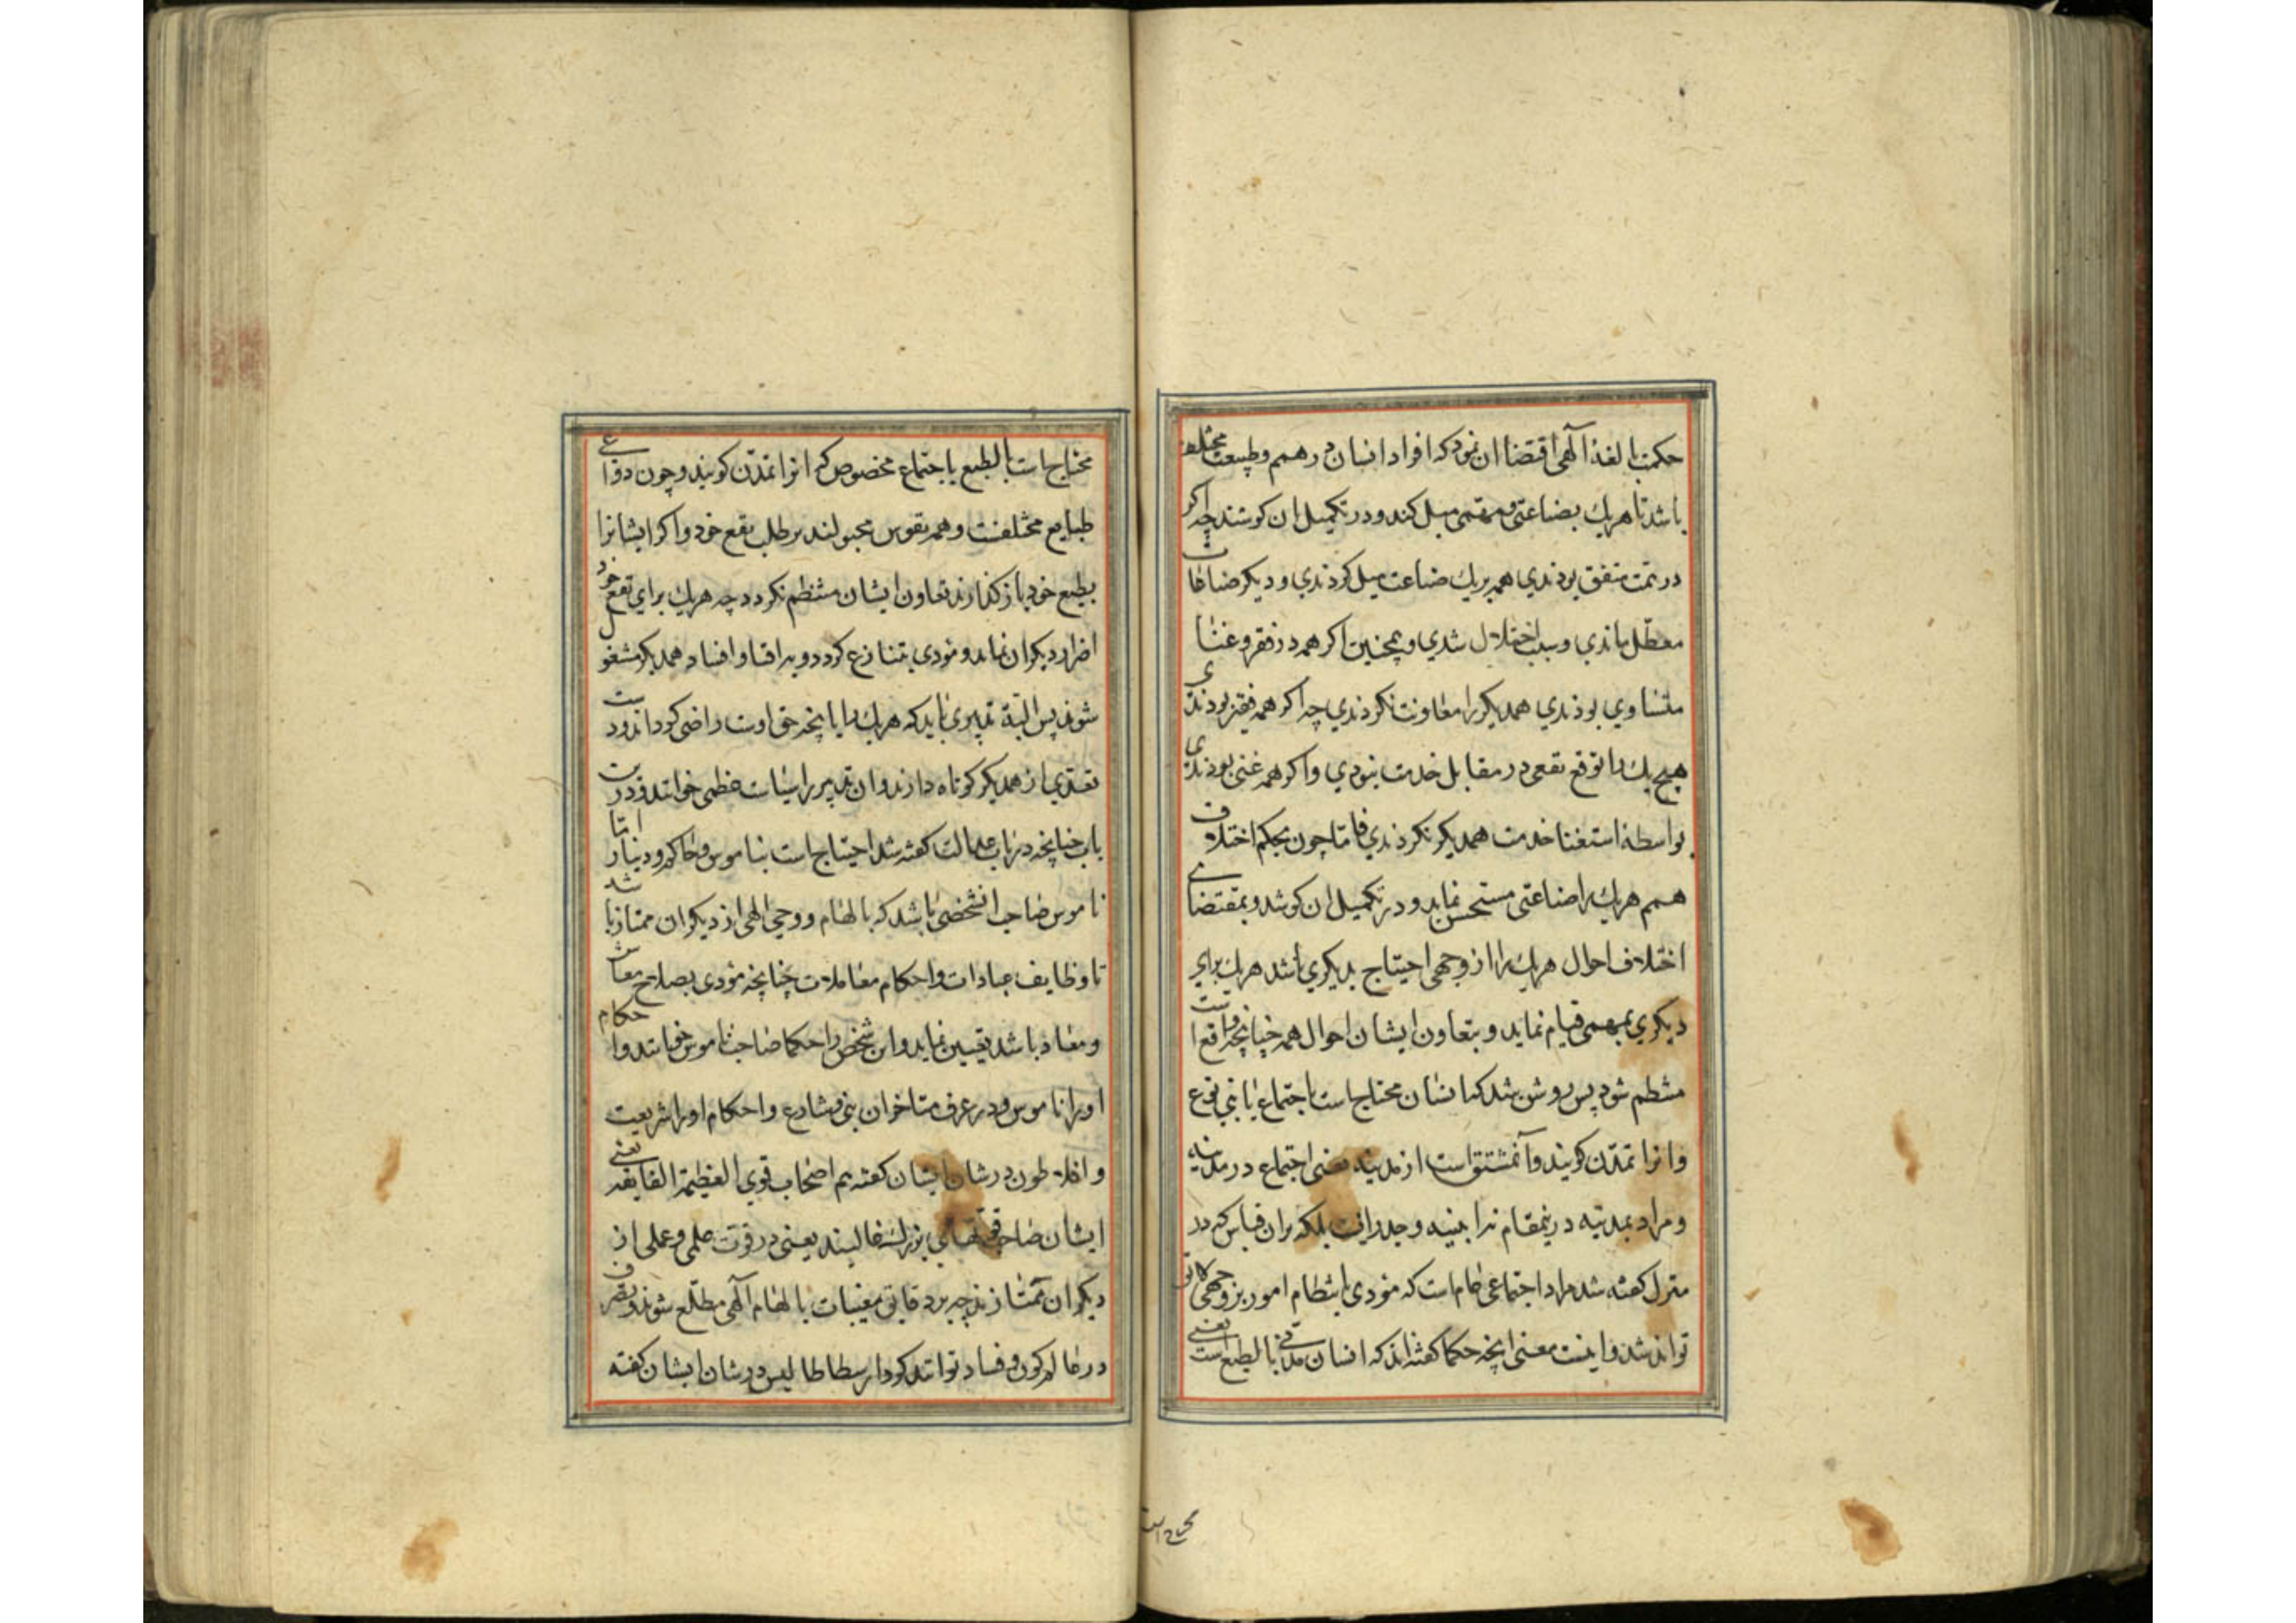 حکمت بالغهٔ آلهی اقتضا ان نمود که افراد انسان در همم و طبیعت مختلف
باشد تا هریك بصناعتی و مهمی میل کند و در تکمیل ان کوشند چه اکر
در همت متفق بودندی همه بریك صناعت میل کردندی و دیکر صناعات
معطّل ماندی و سبب اختلال شدی و همچنین اکر همه در فقر و غنا
متساوی بودندی همدیکر را معاونت نکردندی چه اکر همه فقیر بودندی
هیچ یك را توقع نفعی در مقابل خدمت نبودی و اکر همه غنی بودندی
بواسطه استغنا خدمت همدیکر نکردندی فامّا چون بحکم اختلاف
همم هریك را صناعتی مستحسن نماید و در تکمیل ان کوشد و بمقتضای
اختلاف احوال هریك را از وجهی احتیاج بدیکری باشد هریك برای
دیکری بمهمی قیام نماید و بتعاون ایشان احوال همه چنانچه واقع است
منتظم شود پس روشن شد که انسان محتاج است باجتماع با بنی نوع
و انرا تمدّن کویند و آن مشتق است از مدینه یعنی اجتماع در مدینه
و مراد بمدینه درینمقام نه ابنیه و جدرانست بلکه بران قیاس که در
منزل کفته شد مراد اجتماعی عام است که مؤدی بانتظام امور بر وجهی لایق
تواند شد و اینست معنی انچه حکما کفته اند که انسان مدنی بالطبع است یعنی
محتاج است
محتاج است بالطبع باجتماع مخصوص که انرا تمدّن کویند و چون دواعی
طبایع مختلفست و همه نفوس مجبولند بر طلب نفع خود و اکر ایشانرا
بطبع خود باز کذارند تعاون ایشان منتظم نکردد چه هریك برای نفع خود
اضرار دیکران نماید و مؤدی بتنازع کردد و به افنا و افساد همدیکر مشغول
شوند پس البتة تدبیری باید که هریك را بانچه حق اوست راضی کرداند و دست
تعدّی از همدیکر کوتاه دارند و ان تدبیر را سیاست عظمی خوانند و درین
باب چنانچه در باب عدالت کفته شد احتیاج است بناموس و حاکم و دینار امّا
ناموس صاحب ان شخصی باشد که بالهام و وحی الهی از دیکران ممتاز باشد
تا وظایف عبادات و احکام معاملات چنانچه مؤدی بصلاح معاش
و معاد باشد تعیین نماید و این شخص را حکما صاحب ناموس خوانند و احکام
او را ناموس و در عرف متاخران نبی و شارع و احکام او را شریعت
و افلاطون در شان ایشان کفته هم اصحاب قوی العظیمة الفایقه یعنی
ایشان صاحب قوتهای بزرك غالبند یعنی در قوت علمی و عملی از
دیکران ممتازند چه بر دقایق مغیبات بالهام آلهی مطّلع شوند و تصرف
در عالم کون و فساد توانند کرد و ارسطاطالیس در شان ایشان کفته